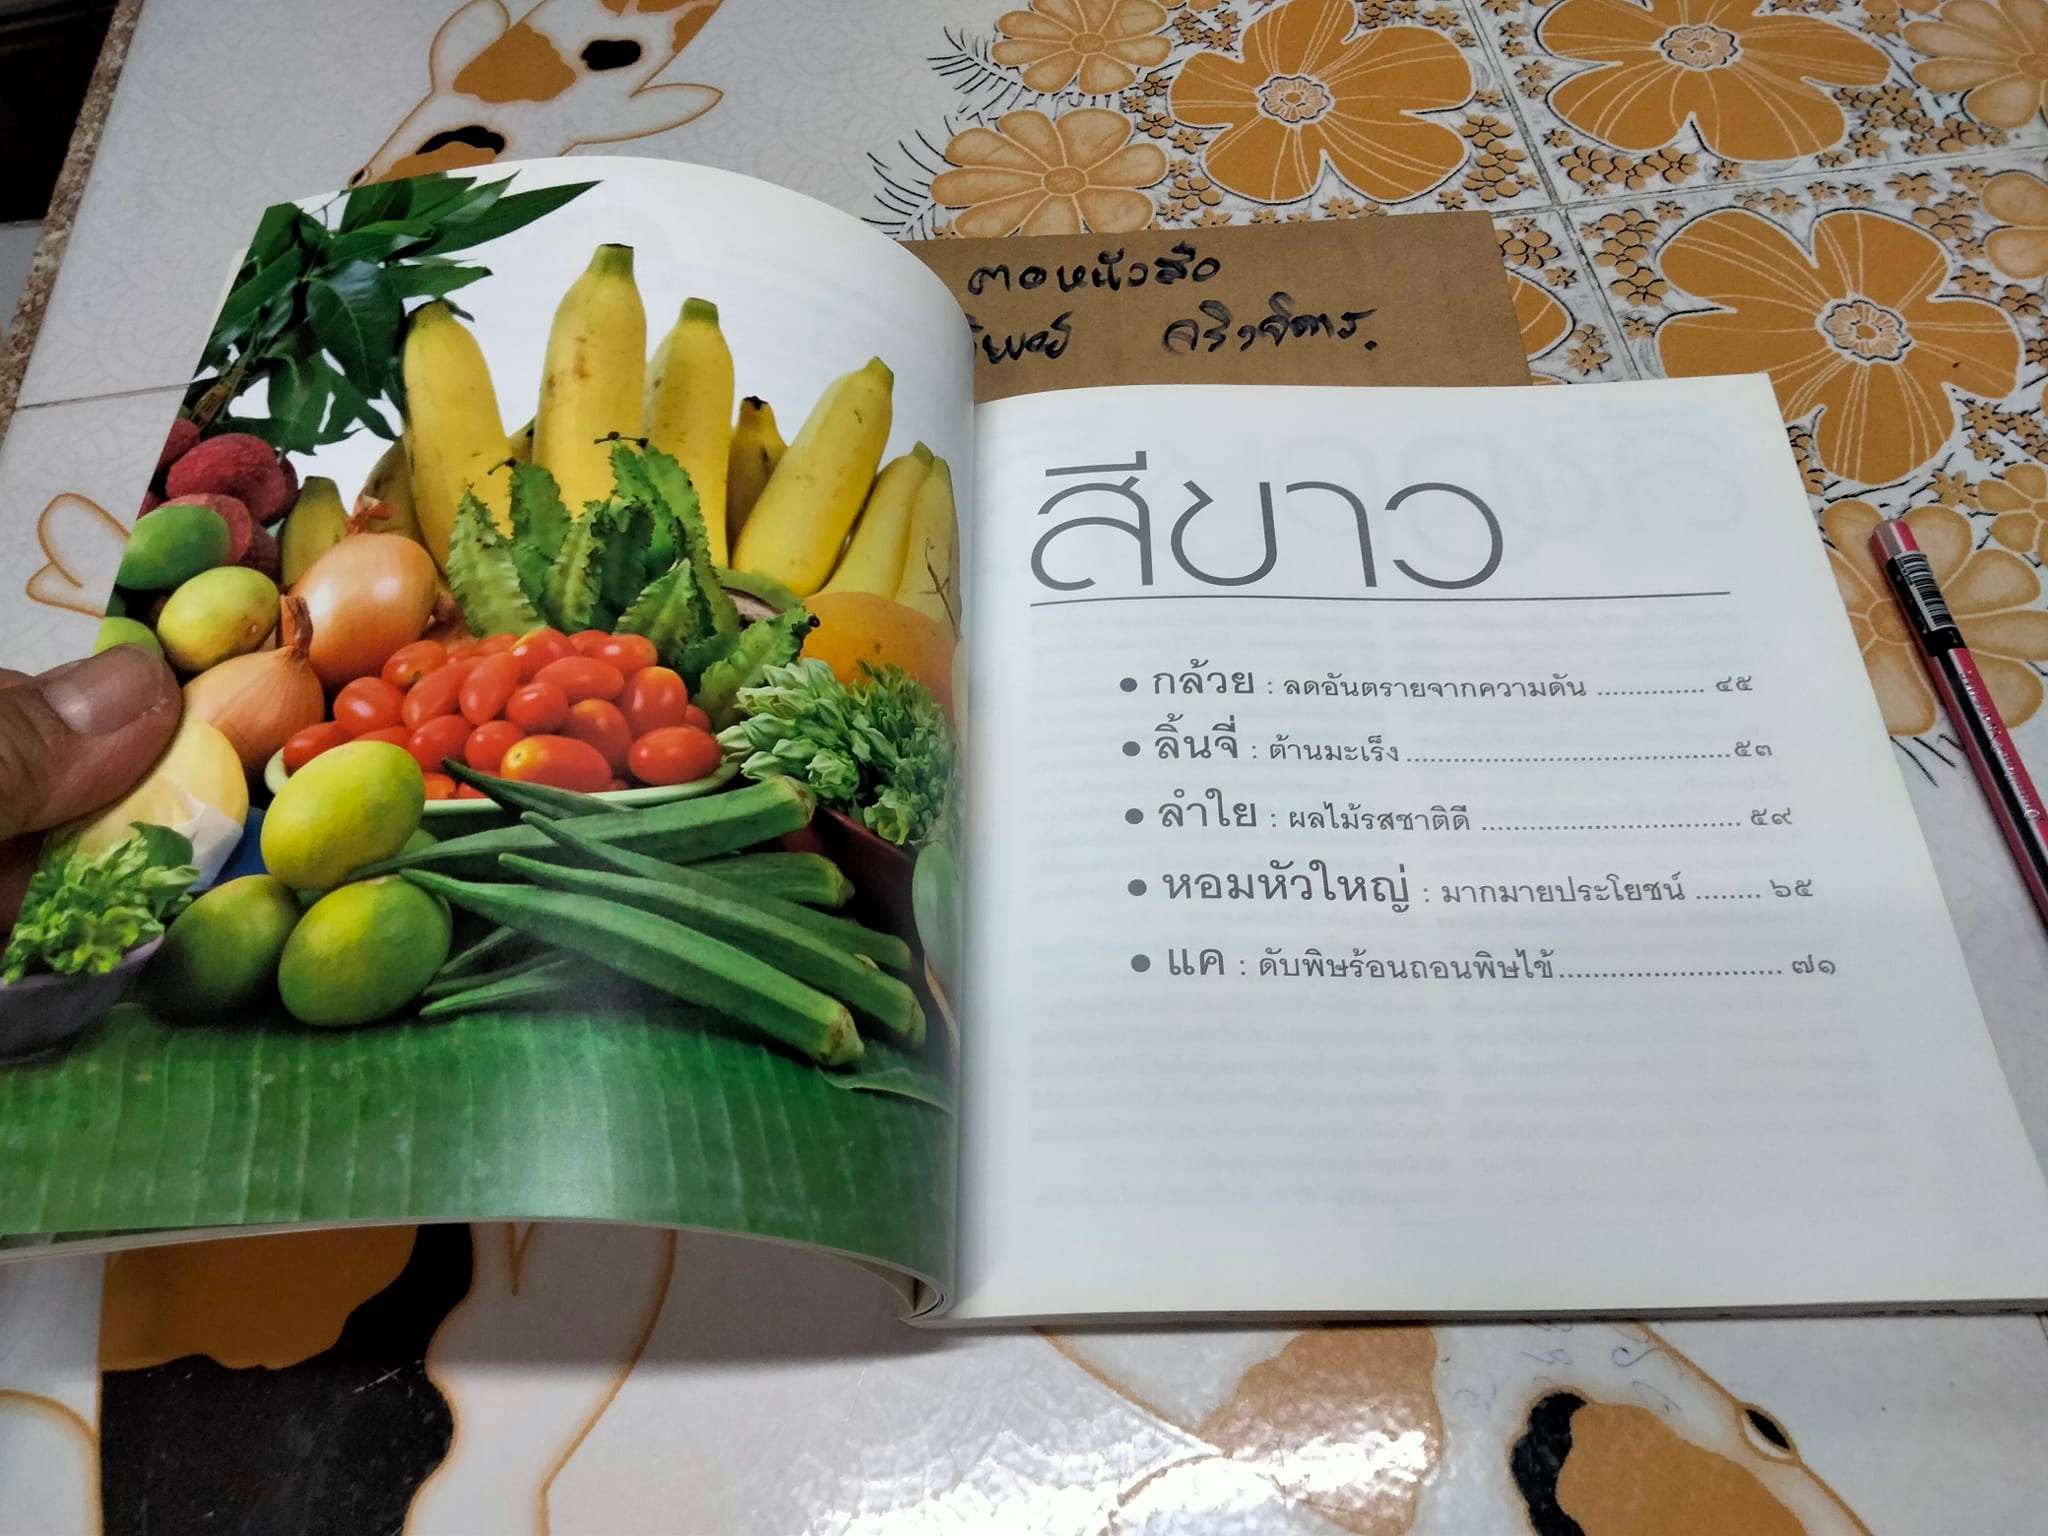 ตอหนังสือ
จริงจิตร.
สีขาว
• กล้วย : ลดอันตรายจากความดัน .............. ๔๕
• ลิ้นจี่ : ต้านมะเร็ง ........................................ ๕๓
• ลำใย : ผลไม้รสชาติดี ................................ ๕๙
• หอมหัวใหญ่ : มากมายประโยชน์ ........ ๖๕
• แค : ดับพิษร้อนถอนพิษไข้............................ ๗๑